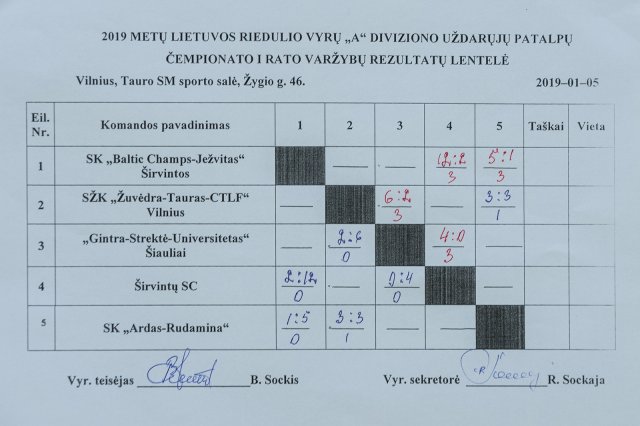 2019 METŲ LIETUVOS RIEDULIO VYRŲ „A“ DIVIZIONO UŽDARŲJŲ PATALPŲ
ČEMPIONATO I RATO VARŽYBŲ REZULTATŲ LENTELĖ
Vilnius, Tauro SM sporto salė, Žygio g. 46. 2019–01–05
Eil. Nr. Komandos pavadinimas 1 2 3 4 5 Taškai Vieta
1 SK „Baltic Champs-Ježvitas“ Širvintos — — 12:2 3 5:1 3
2 SŽK „Žuvėdra-Tauras-CTLF“ Vilnius — 6:2 3 — 3:3 1
3 „Gintra-Strektė-Universitetas“ Šiauliai — 2:6 0 4:0 3 —
4 Širvintų SC 2:12 0 — 0:4 0 —
5 SK „Ardas-Rudamina“ 1:5 0 3:3 1 — —
Vyr. teisėjas B. Sockis Vyr. sekretorė R. Sockaja